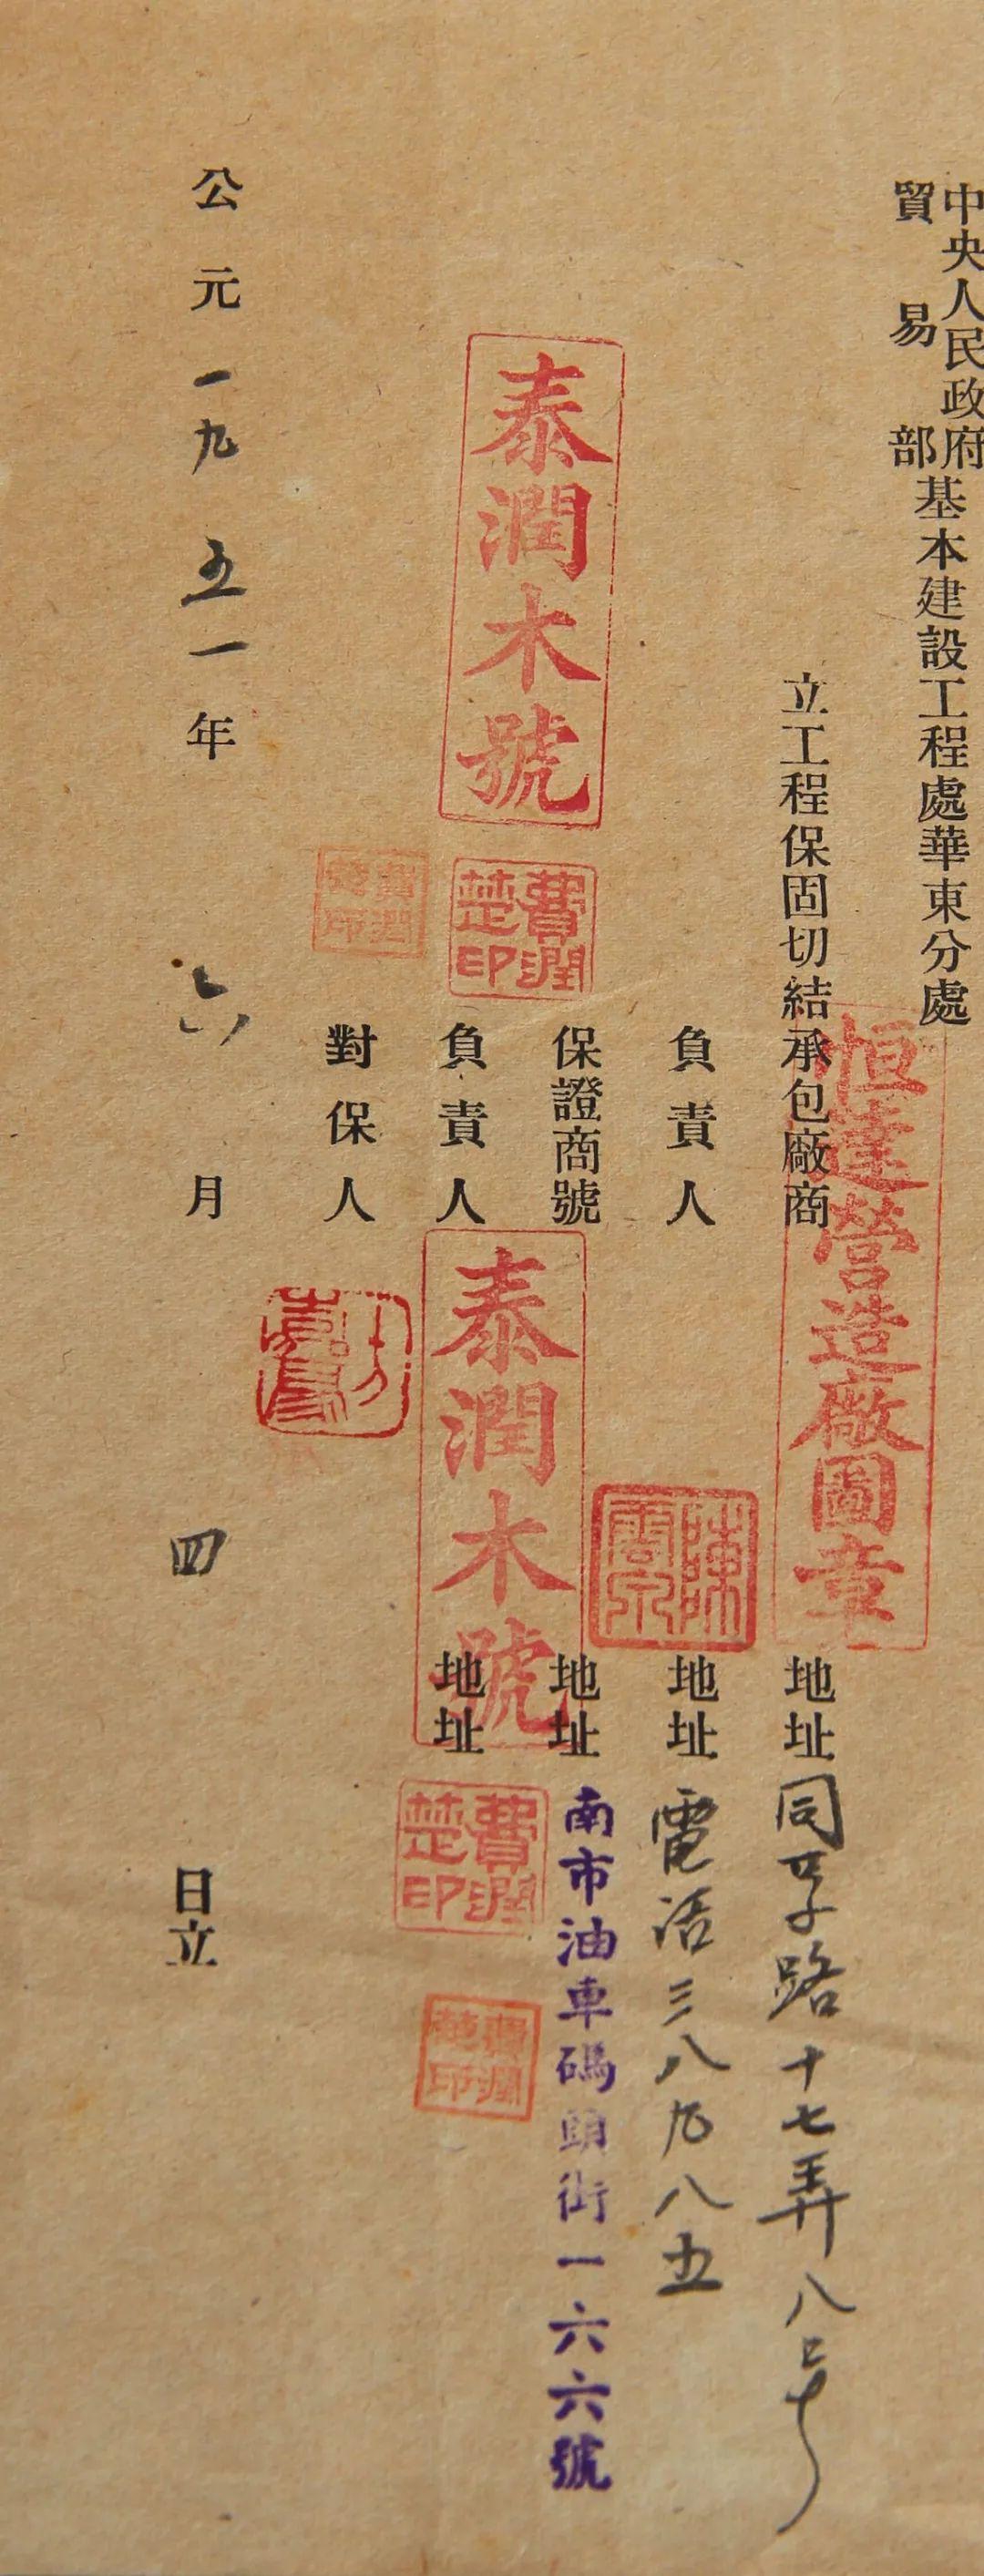 中央人民政府
貿易部
基本建設工程處華東分處
立工程保固切結承包廠商
恒達營造廠圖章
地址
同孚路十七弄八号
負責人
陳
地址
電话三八九八五
保證商號
泰潤木號
地址
南市油車碼頭街一六六號
負責人
泰潤木號
費潤楚印
地址
費潤楚印
費潤楚印
對保人
費潤楚印
公元一九五一年六月四日立